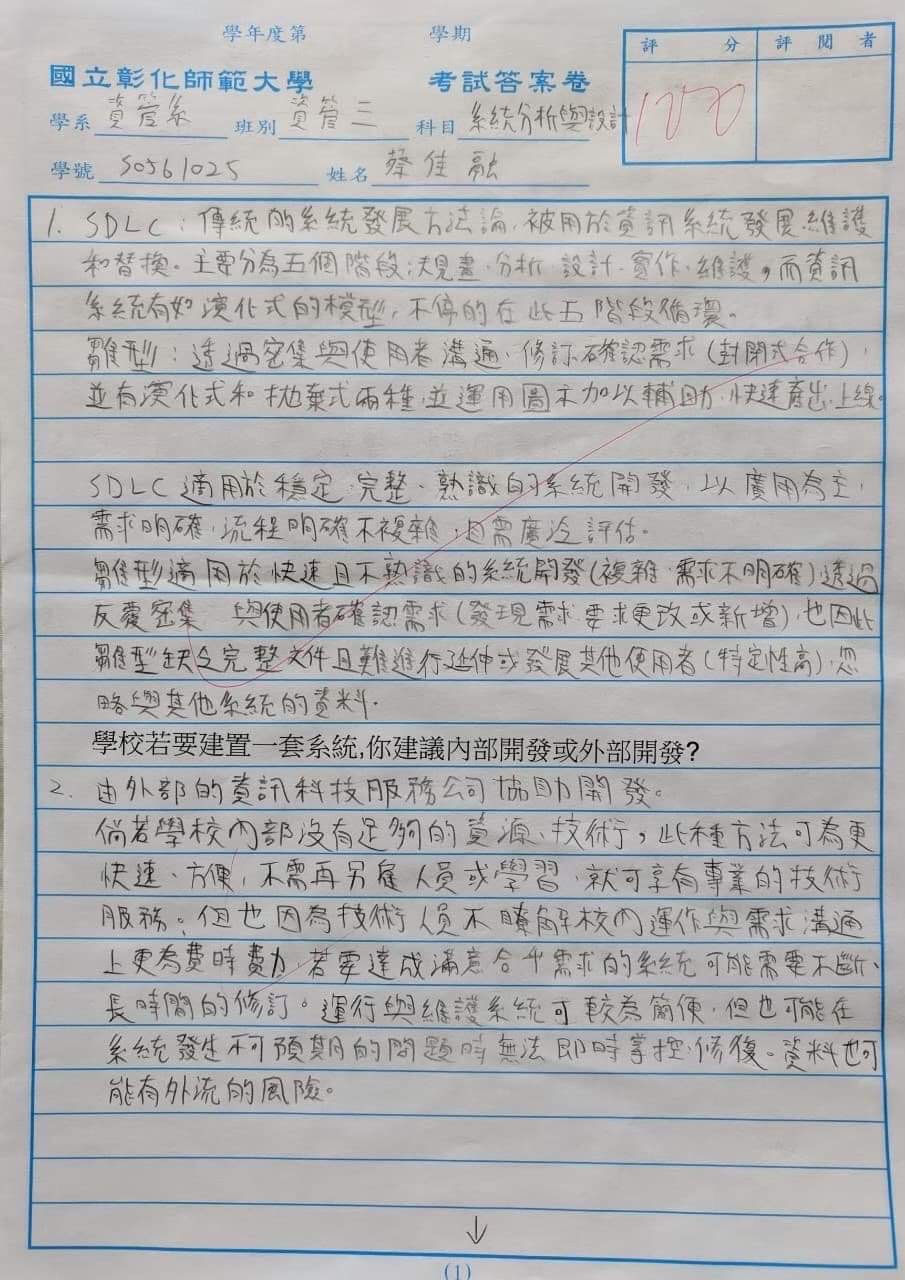 學年度第 學期
國立彰化師範大學 考試答案卷
評分 評閱者
100
學系 資管系 班別 資管三 科目 系統分析與設計
學號 S0561025 姓名 蔡佳融
1. SDLC:傳統的系統發展方法論,被用於資訊系統發展、維護
和替換。主要分為五個階段:規畫、分析、設計、實作、維護,而資訊
系統有如演化式的模型,不停的在此五階段循環。
雛型:透過密集與使用者溝通、修訂、確認需求(封閉式合作),
並有演化式和拋棄式兩種,並運用圖示加以輔助,快速產出、上線。
SDLC適用於穩定、完整、熟識的系統開發,以廣用為主,
需求明確,流程明確不複雜,且需廣泛評估。
雛型適用於快速且不熟識的系統開發(複雜、需求不明確)透過
反覆密集 與使用者確認需求(發現需求、要求更改或新增),也因此
雛型缺乏完整文件且難進行延伸或發展其他使用者(特定性高),忽
略與其他系統的資料.
學校若要建置一套系統,你建議內部開發或外部開發?
2. 由外部的資訊科技服務公司協助開發。
倘若學校內部沒有足夠的資源、技術,此種方法可為更
快速、方便,不需再另雇人員或學習,就可享有專業的技術
服務。但也因為技術人員不瞭解校內運作與需求溝通
上更為費時費力,若要達成滿意合乎需求的系統可能需要不斷、
長時間的修訂。運行與維護系統可較為簡便,但也可能在
系統發生不可預期的問題時無法即時掌控、修復。資料也可
能有外流的風險。
↓
(1)